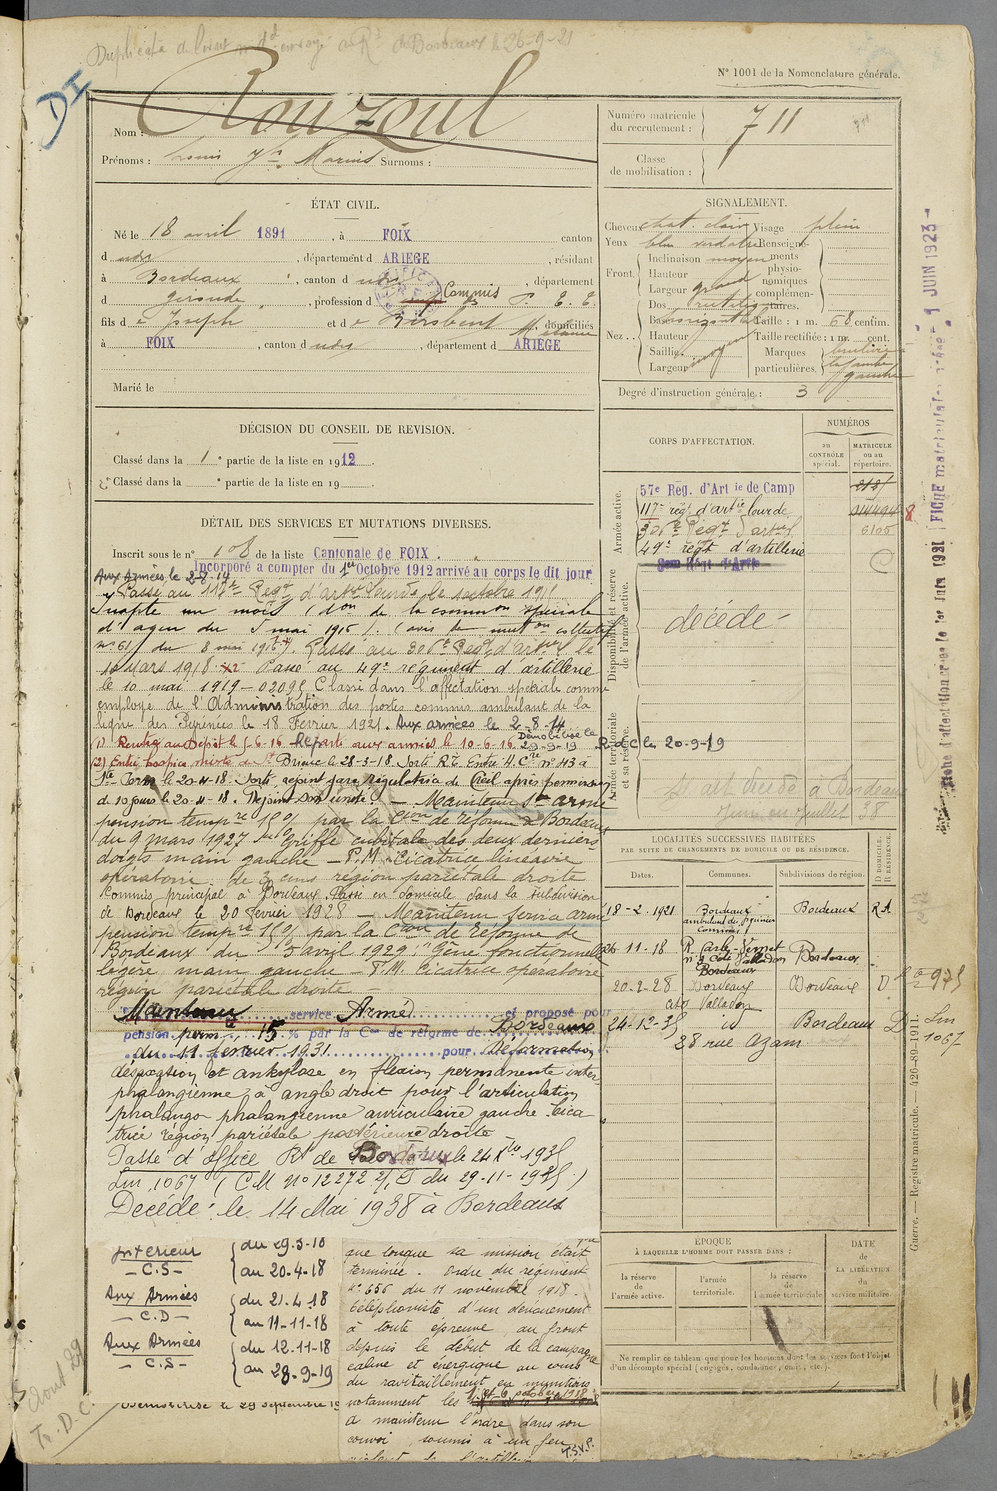 Duplicata du livret envoyé au Rt de Bordeaux le 26-9-21
DI
N° 1001 de la Nomenclature générale.
Nom : Rouzoul
Prénoms : Louis Jh Marius Surnoms :
Numéro matricule du recrutement : 711
711
Classe de mobilisation :
ÉTAT CIVIL.
Né le 18 avril 1891, à FOIX canton
d udit, département d ARIEGE, résidant
à Bordeaux, canton d udit, département
d Gironde, profession d Commis P.T.T.
fils d e Joseph et d e Mélanie, domiciliés
à FOIX, canton d udit, département d ARIEGE
Marié le
SIGNALEMENT.
Cheveux chat. clair Visage plein
Yeux bleu verdatre Renseignements physionomiques complémentaires.
Front. Inclinaison moyen
Hauteur
Largeur grand
Nez. Dos rectiligne
Base horizontale Taille : 1 m. 68 centim.
Hauteur Taille rectifiée : 1 m. cent.
Saillie moyen Marques particulières.
Largeur
jambe gauche
Degré d'instruction générale : 3
DÉCISION DU CONSEIL DE REVISION.
Classé dans la 1e partie de la liste en 1912.
Classé dans la e partie de la liste en 19 .
CORPS D'AFFECTATION.
NUMÉROS
au CONTRÔLE spécial.
MATRICULE ou au répertoire.
Armée active.
57e Rég. d'Artie de Camp
117e rég. d'artie lourde
306e Regt d'art
6106
49e régt d'artillerie
Disponibilité et réserve de l'armée active.
décédé
Armée territoriale et sa réserve.
RdC le 20-9-19
est décédé à Bordeaux
Juin ou Juillet 38
DÉTAIL DES SERVICES ET MUTATIONS DIVERSES.
Inscrit sous le n° 108 de la liste Cantonale de FOIX.
Incorporé a compter du 1er Octobre 1912 arrivé au corps le dit jour
Aux Armées le 2-8-14
Passé au 117e Regt d'artie lourde le 1 octobre 1915
Inapte un mois (Don de la common spéciale
d'Agen du 5 mai 1916). (avis de mutton collectif
n° 61) du 8 mai 1916. Passé au 306e Regt d'artie le
10 Mars 1918. Passé au 49e régiment d'artillerie
le 10 mai 1919 - Classé dans l'affectation spéciale comme
employé de l'Administration des postes commis ambulant de la
ligne des Pyrénées le 18 Février 1921. Aux armées le 2-8-14
Démobilisé le 29-9-19
1) Rentré au Dépôt le 5-6-16 Reparti aux armées le 10-6-16
(2) Entré hospice mixte de St Brieuc le 28-3-18. Sorti R.T. Entré H. Cre n° 43 à
1re Perm le 20-4-18. Sorti, rejoint gare régulatrice de Creil après permission
de 10 jours le 20-4-18. Rejoint son unité. — Maintenu Sce armé
pension tempre 15% par la Cion de réforme de Bordeaux
du 9 mars 1927 Griffe cubitale des deux derniers
doigts main gauche — P.M. Cicatrice linéaire
opératoire de 3 cms région pariétale droite
Commis principal à Bordeaux. Passé en domicile dans la subdivision
de Bordeaux le 20 Février 1928 — Maintenu service armé
pension tempre 15% par la Con de Réforme de
Bordeaux du 5 avril 1929. "Gêne fonctionnelle
légère main gauche — P.M. Cicatrice opératoire
région pariétale droite —
Maintenu service Armé et proposé pour
pension perm 15 % par la Con de réforme de Bordeaux
du 11 fevrier 1931 pour Déformation,
déviation et ankylose en flexion permanente inter
phalangienne, à angle droit pour l'articulation
phalango phalangienne auriculaire gauche. Cica
trice région pariétale postérieure droite
Passé d'office Rt de Bordeaux le 24 Xbre 1935
Lm 1067 (C.M. n° 12272 2/D du 29-11-1935)
Décédé le 14 Mai 1938 à Bordeaux
LOCALITÉS SUCCESSIVES HABITÉES
PAR SUITE DE CHANGEMENTS DE DOMICILE OU DE RÉSIDENCE.
Dates. Communes. Subdivisions de région. D DOMICILE. R RÉSIDENCE.
18-2-1921 Bordeaux Bordeaux RA
26-11-18 R. Carle-Vernet n° 2 Cité Valladon Bordeaux Bordeaux
20-2-28 Bordeaux Bordeaux D
cité Valladon
24-12-35 id Bordeaux D
28 rue Azam
Lm 1067
975
Intérieur — C.S — du 29.3-18 au 20-4-18
Aux Armées — C.D — du 21.4-18 au 11-11-18
Aux Armées — C.S — du 12.11-18 au 28.9-19
Démobilisé le 29 septembre 19
que lorsque sa mission était
terminée. Ordre du régiment
n° 656 du 11 novembre 1918.
Téléphoniste d'un dévouement
à toute épreuve au front
depuis le début de la campagne
calme et énergique au cours
du ravitaillement en munitions
notamment les 5 et 6 octobre 1918
a maintenu l'ordre dans son
convoi, soumis à un feu
violent de l'artillerie
T.S.V.P.
ÉPOQUE
À LAQUELLE L'HOMME DOIT PASSER DANS :
la réserve de l'armée active.
l'armée territoriale.
la réserve de l'armée territoriale.
DATE de LA LIBÉRATION du service militaire.
Ne remplir ce tableau que pour les hommes dont les services font l'objet d'un décompte spécial (engagés, condamnés, omis, etc.).
Guerre. — Registre matricule. — 426-89-1911.
1 JUIN 1923
FICHE matricule
Fiche d'affectation créée le 1er Juin 1921
Août 29
Tr. D.C.